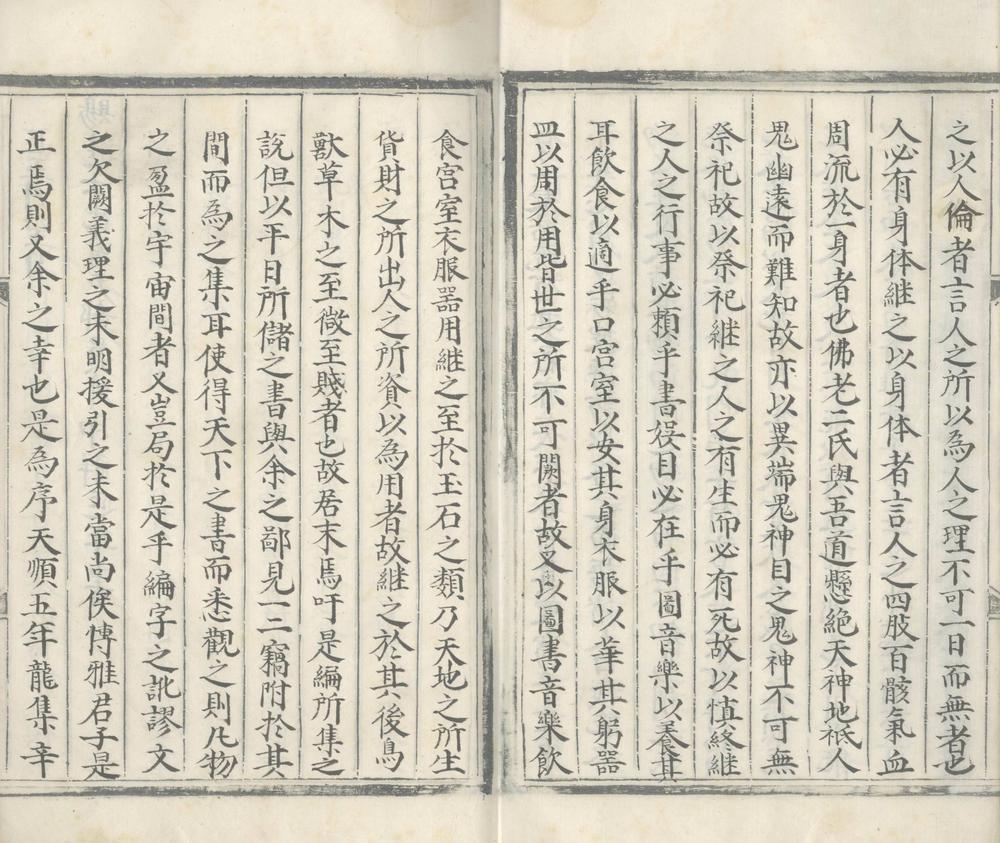 之以人倫者言人之所以為人之理不可一日而無者也
人必有身体継之以身体者言人之四肢百骸氣血
周流於一身者也佛老二氏與吾道懸絶天神地祗人
鬼幽遠而難知故亦以異端鬼神目之鬼神不可無
祭祀故以祭祀継之人之有生而必有死故以慎終継
之人之行事必頼乎書娱目必在乎圖音樂以養其
耳飲食以適乎口宫室以安其身衣服以華其躬器
皿以周於用皆世之所不可闕者故又以圖書音樂飲
食宫室衣服器用継之至於玉石之類乃天地之所生
貨財之所出人之所資以為用者故継之於其後鳥
獸草木之至微至賤者也故居末焉吁是編所集之
說但以平日所儲之書與余之鄙見一二竊附於其
間而為之集耳使得天下之書而悉觀之則凡物
之盈於宇宙間者又豈局於是乎編字之訛謬文
之欠闕義理之未明援引之未當尚俟博雅君子是
正焉則又余之幸也是為序天順五年龍集辛